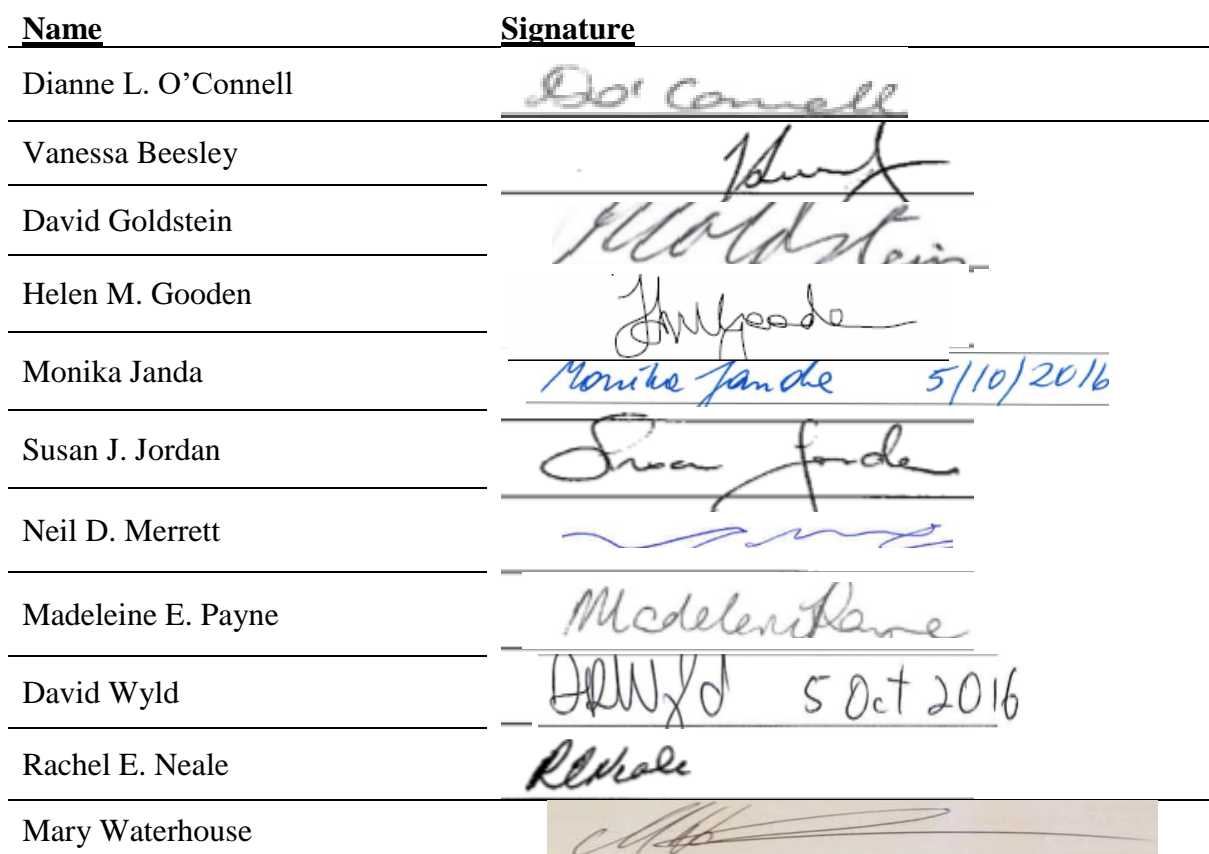 Name Signature
Dianne L. O’Connell DO' Connell
Vanessa Beesley
David Goldstein Goldstein
Helen M. Gooden HMGooden
Monika Janda Monika Janda 5/10/2016
Susan J. Jordan Susan Jordan
Neil D. Merrett
Madeleine E. Payne Madeleine Payne
David Wyld DRWyld 5 Oct 2016
Rachel E. Neale RENeale
Mary Waterhouse